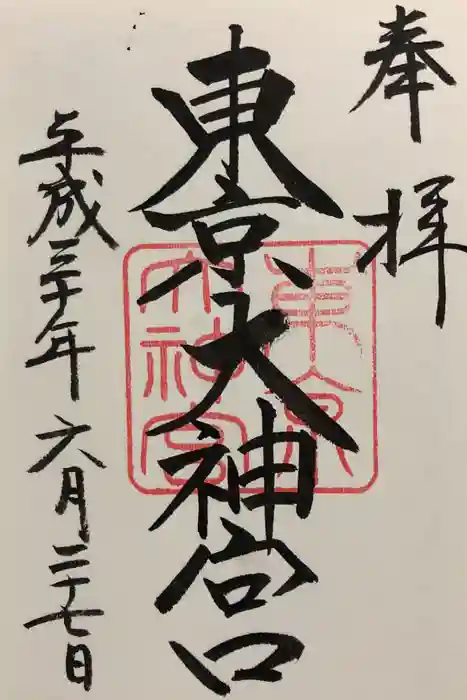 奉拝
東京大神宮
東京
大神宮
平成三十年六月二十七日